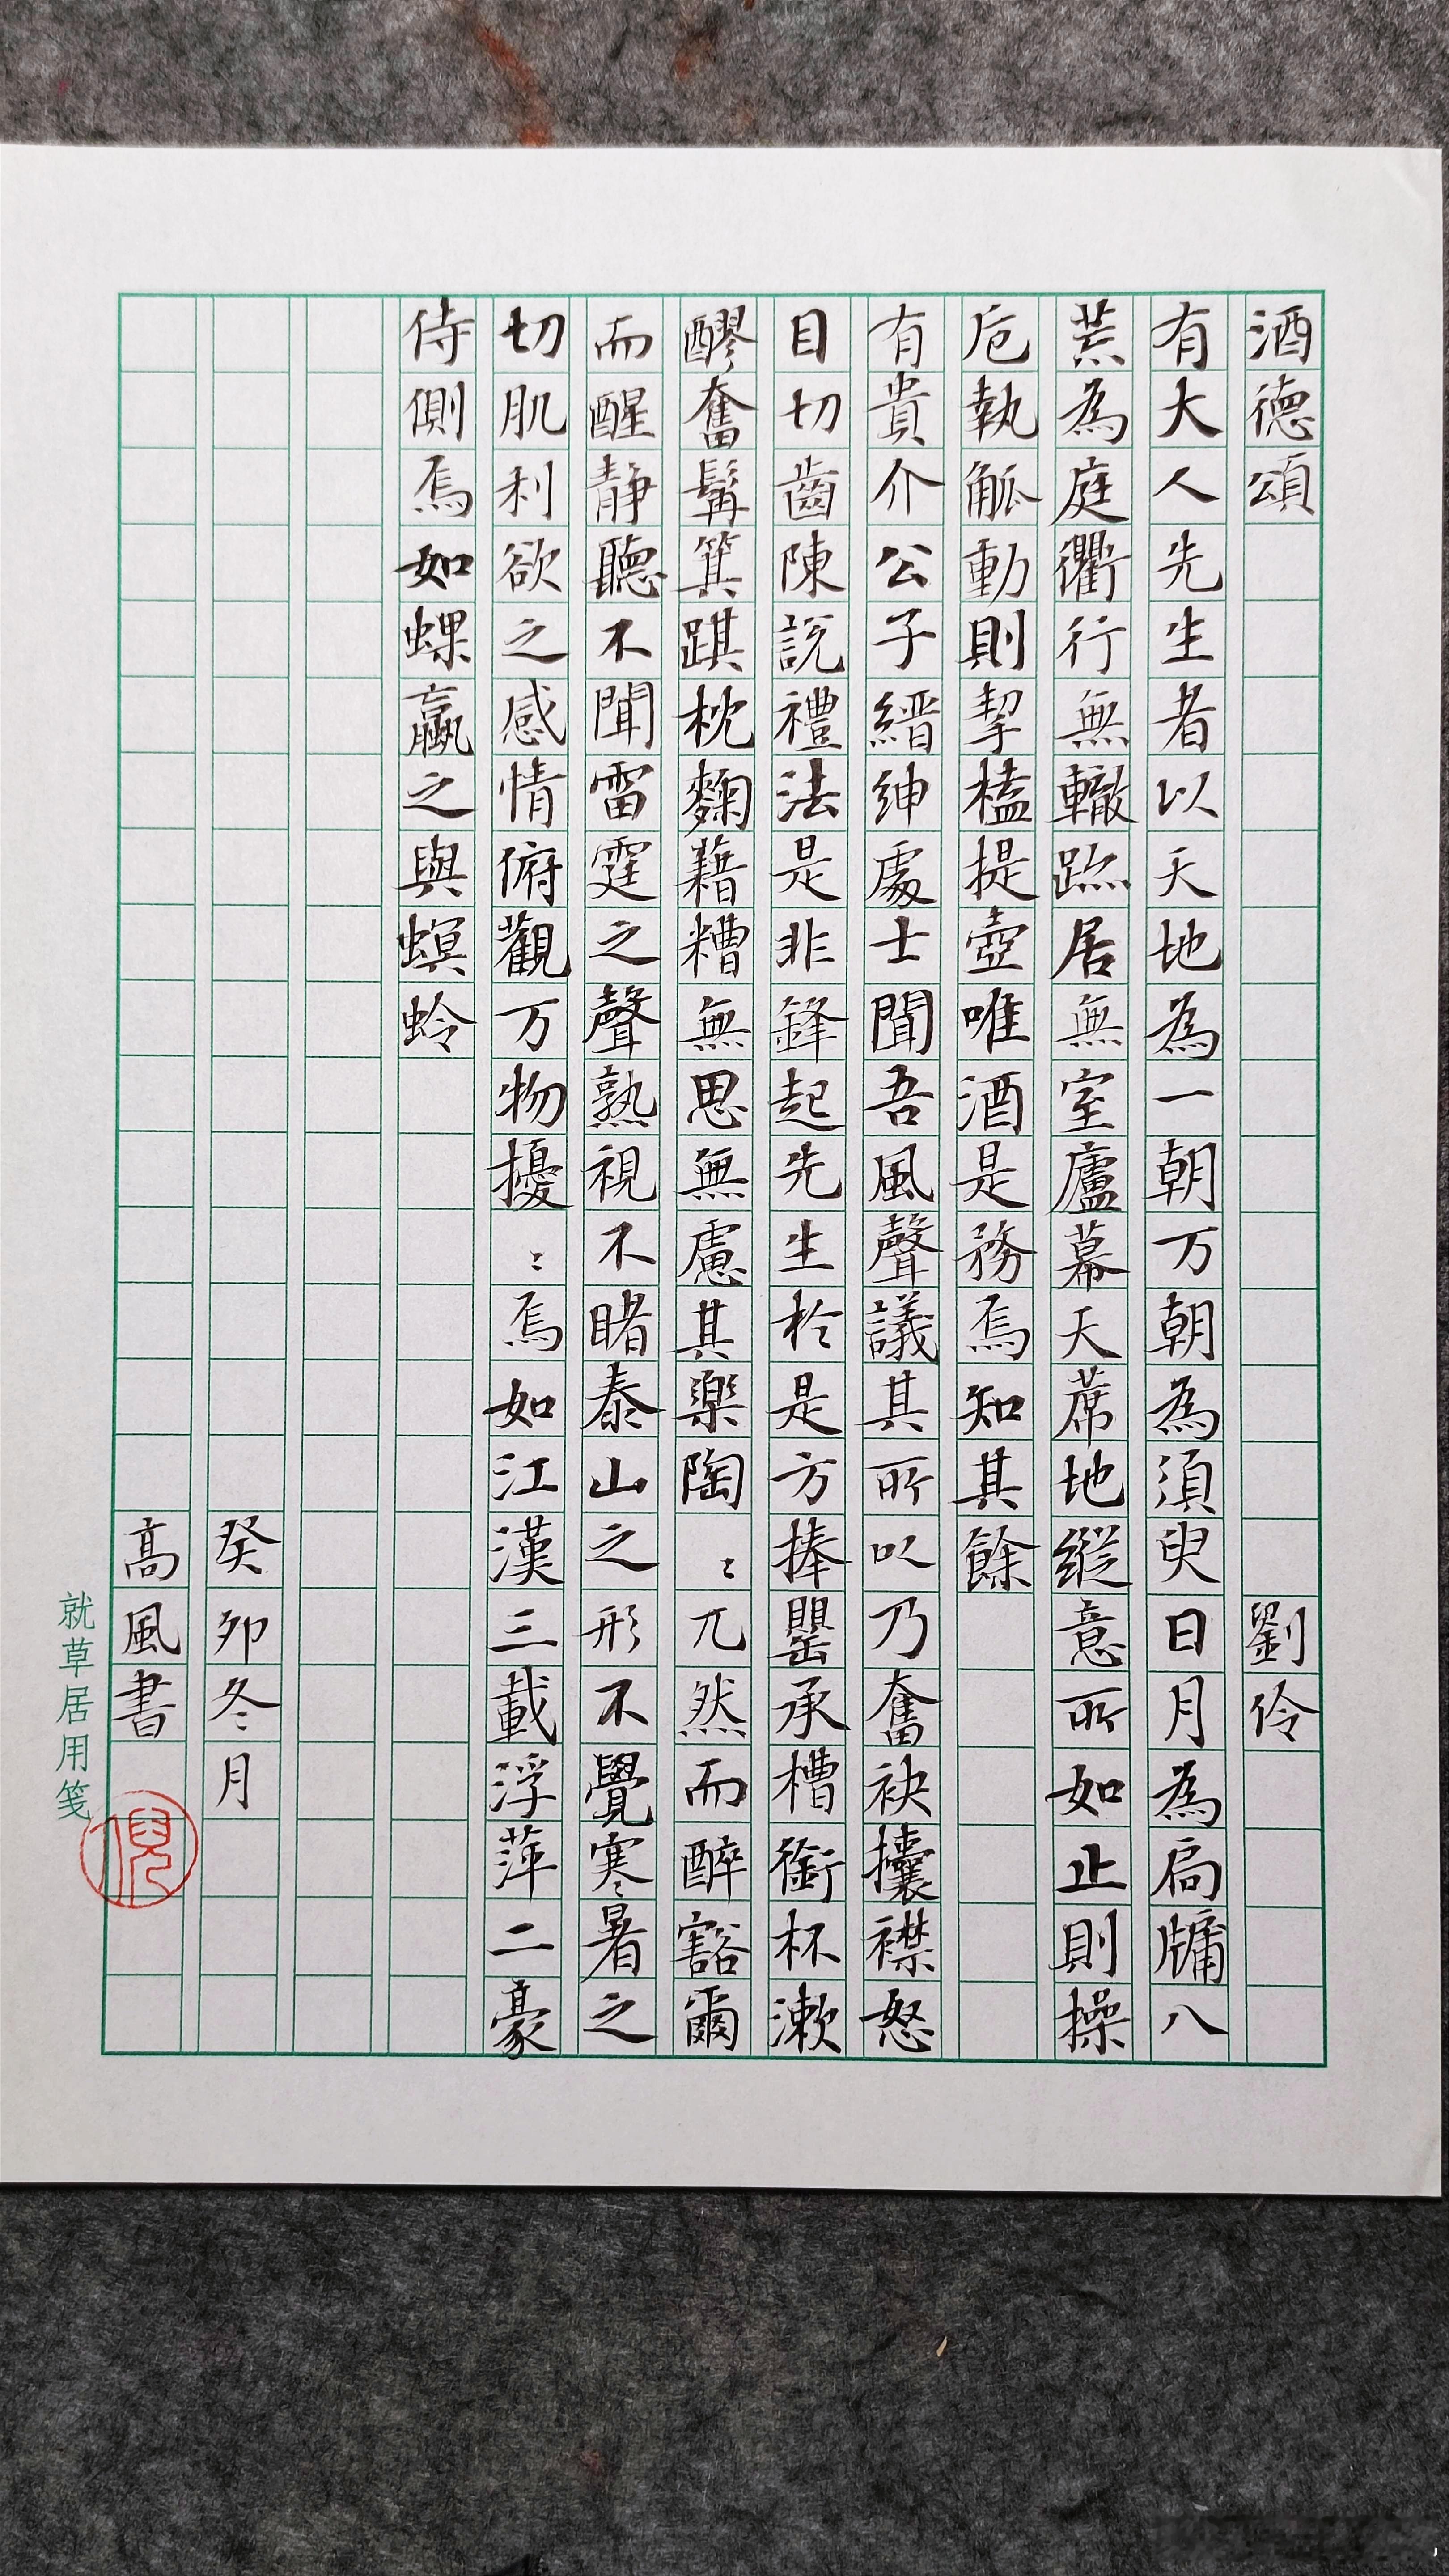 酒德頌 劉伶
有大人先生者以天地為一朝万朝為須臾日月為扃牖八
荒為庭衢行無轍跡居無室廬幕天席地縱意所如止則操
卮執觚動則挈榼提壺唯酒是務焉知其餘
有貴介公子縉紳處士聞吾風聲議其所以乃奮袂攘襟怒
目切齒陳說禮法是非鋒起先生於是方捧罌承槽銜杯漱
醪奮髯箕踑枕麴藉糟無思無慮其樂陶〻兀然而醉豁爾
而醒静聽不聞雷霆之聲熟視不睹泰山之形不覺寒暑之
切肌利欲之感情俯觀万物擾〻焉如江漢三載浮萍二豪
侍側焉如蜾蠃之與螟蛉
癸卯冬月
高風書
就草居用箋
倪